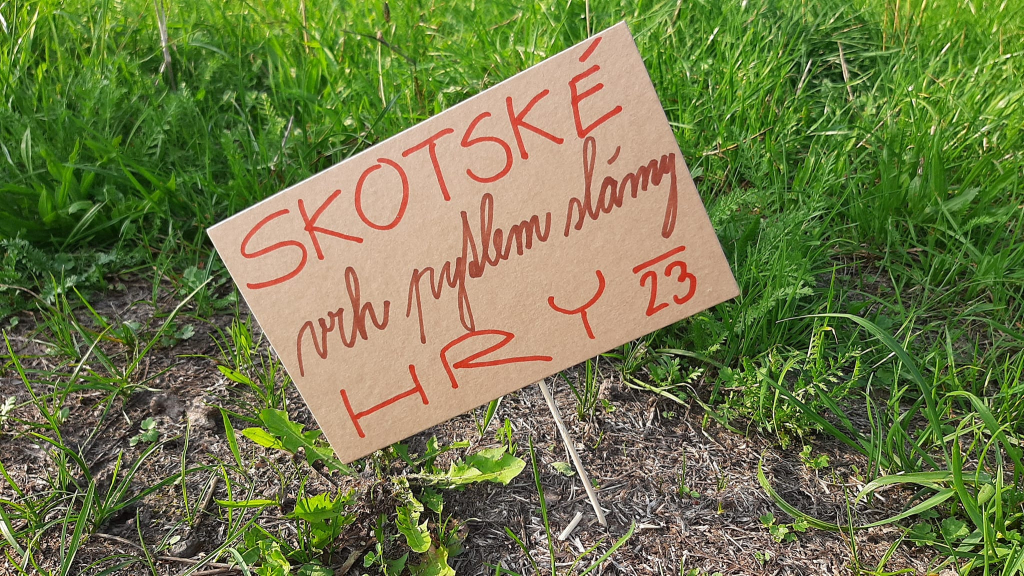 SKOTSKÉ
vrh pytlem slámy
HRY 23